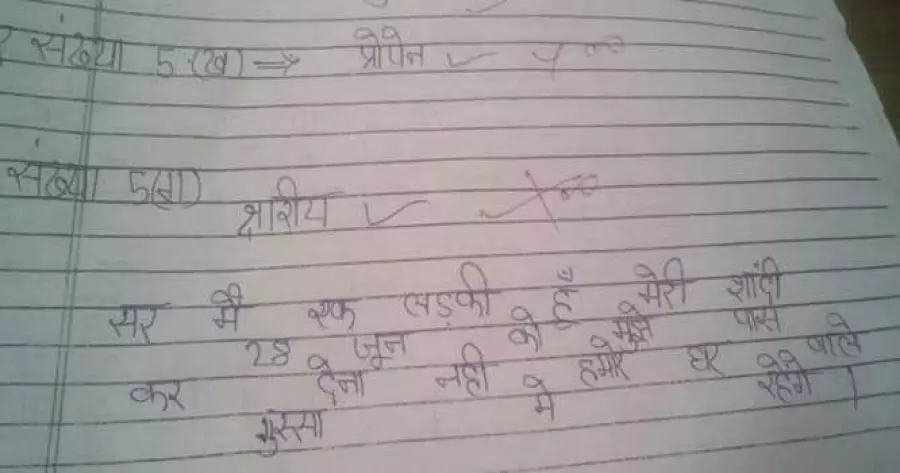 संख्या 5.(ख) ⇒ प्रोपेन
संख्या 5(ग)
क्षारीय
सर मै एक लड़की हूँ मेरी शादी
28 जून को है मुझे पास
कर देना नही हमारे घर वाले
गुस्सा मे रहेगे।